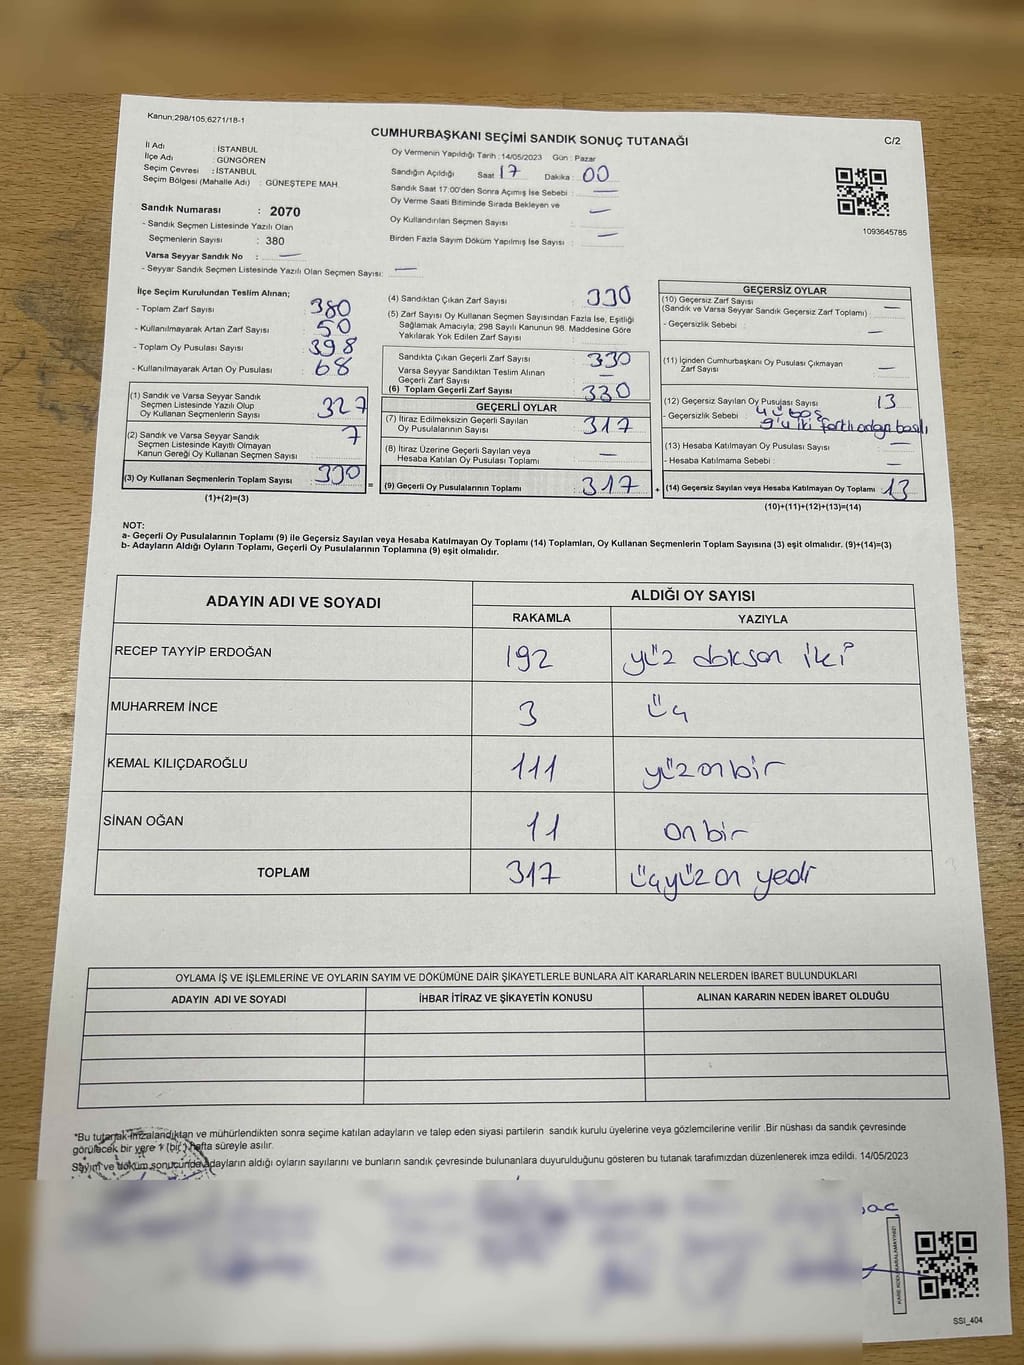 Kanun;298/105;6271/18-1
CUMHURBAŞKANI SEÇİMİ SANDIK SONUÇ TUTANAĞI
C/2
İl Adı : İSTANBUL
İlçe Adı : GÜNGÖREN
Seçim Çevresi : İSTANBUL
Seçim Bölgesi (Mahalle Adı) : GÜNEŞTEPE MAH.
Sandık Numarası : 2070
- Sandık Seçmen Listesinde Yazılı Olan
Seçmenlerin Sayısı : 380
Varsa Seyyar Sandık No : —
- Seyyar Sandık Seçmen Listesinde Yazılı Olan Seçmen Sayısı: —
Oy Vermenin Yapıldığı Tarih : 14/05/2023 Gün : Pazar
Sandığın Açıldığı Saat 17 Dakika : 00
Sandık Saat 17:00'den Sonra Açımış İse Sebebi : —
Oy Verme Saati Bitiminde Sırada Bekleyen ve
Oy Kullandırılan Seçmen Sayısı : —
Birden Fazla Sayım Döküm Yapılmış İse Sayısı : —
1093645785
İlçe Seçim Kurulundan Teslim Alınan;
- Toplam Zarf Sayısı : 380
- Kullanılmayarak Artan Zarf Sayısı : 50
- Toplam Oy Pusulası Sayısı : 398
- Kullanılmayarak Artan Oy Pusulası : 68
(1) Sandık ve Varsa Seyyar Sandık
Seçmen Listesinde Yazılı Olup
Oy Kullanan Seçmenlerin Sayısı : 327
(2) Sandık ve Varsa Seyyar Sandık
Seçmen Listesinde Kayıtlı Olmayan
Kanun Gereği Oy Kullanan Seçmen Sayısı : 7
(3) Oy Kullanan Seçmenlerin Toplam Sayısı : 330
(1)+(2)=(3)
=
(4) Sandıktan Çıkan Zarf Sayısı : 330
(5) Zarf Sayısı Oy Kullanan Seçmen Sayısından Fazla İse, Eşitliği
Sağlamak Amacıyla, 298 Sayılı Kanunun 98. Maddesine Göre
Yakılarak Yok Edilen Zarf Sayısı :
Sandıkta Çıkan Geçerli Zarf Sayısı : 330
Varsa Seyyar Sandıktan Teslim Alınan
Geçerli Zarf Sayısı : —
(6) Toplam Geçerli Zarf Sayısı : 330
GEÇERLİ OYLAR
(7) İtiraz Edilmeksizin Geçerli Sayılan
Oy Pusulalarının Sayısı : 317
(8) İtiraz Üzerine Geçerli Sayılan veya
Hesaba Katılan Oy Pusulası Toplamı : —
(9) Geçerli Oy Pusulalarının Toplamı : 317
+
GEÇERSİZ OYLAR
(10) Geçersiz Zarf Sayısı : —
(Sandık ve Varsa Seyyar Sandık Geçersiz Zarf Toplamı)
- Geçersizlik Sebebi : —
(11) İçinden Cumhurbaşkanı Oy Pusulası Çıkmayan
Zarf Sayısı : —
(12) Geçersiz Sayılan Oy Pusulası Sayısı : 13
- Geçersizlik Sebebi : 4'ü boş
9'u iki farklı adaya basılı
(13) Hesaba Katılmayan Oy Pusulası Sayısı : —
- Hesaba Katılmama Sebebi : —
(14) Geçersiz Sayılan veya Hesaba Katılmayan Oy Toplamı : 13
(10)+(11)+(12)+(13)=(14)
NOT:
a- Geçerli Oy Pusulalarının Toplamı (9) ile Geçersiz Sayılan veya Hesaba Katılmayan Oy Toplamı (14) Toplamları, Oy Kullanan Seçmenlerin Toplam Sayısına (3) eşit olmalıdır. (9)+(14)=(3)
b- Adayların Aldığı Oyların Toplamı, Geçerli Oy Pusulalarının Toplamına (9) eşit olmalıdır.
ADAYIN ADI VE SOYADI
ALDIĞI OY SAYISI
RAKAMLA YAZIYLA
RECEP TAYYİP ERDOĞAN 192 yüz doksan iki
MUHARREM İNCE 3 üç
KEMAL KILIÇDAROĞLU 111 yüzonbir
SİNAN OĞAN 11 on bir
TOPLAM 317 üçyüz on yedi
OYLAMA İŞ VE İŞLEMLERİNE VE OYLARIN SAYIM VE DÖKÜMÜNE DAİR ŞİKAYETLERLE BUNLARA AİT KARARLARIN NELERDEN İBARET BULUNDUKLARI
ADAYIN ADI VE SOYADI İHBAR İTİRAZ VE ŞİKAYETİN KONUSU ALINAN KARARIN NEDEN İBARET OLDUĞU
*Bu tutanak imzalandıktan ve mühürlendikten sonra seçime katılan adayların ve talep eden siyasi partilerin sandık kurulu üyelerine veya gözlemcilerine verilir .Bir nüshası da sandık çevresinde
görülecek bir yere 1 (bir ) hafta süreyle asılır.
Sayım ve döküm sonucunda adayların aldığı oyların sayılarını ve bunların sandık çevresinde bulunanlara duyurulduğunu gösteren bu tutanak tarafımızdan düzenlenerek imza edildi. 14/05/2023
SSI_404